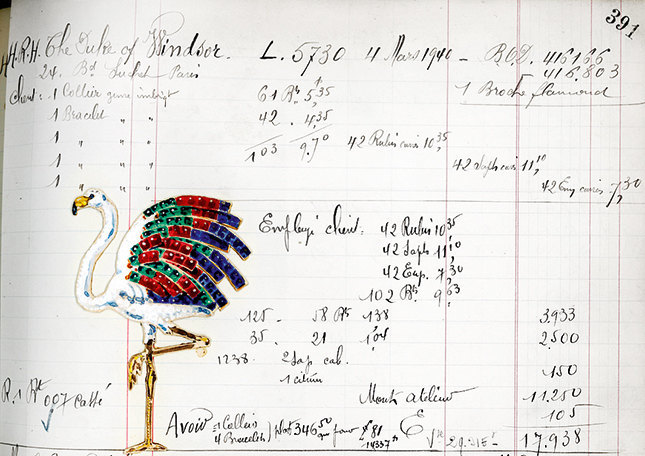 391
H.R.H. The Duke of Windsor. L. 5730 4 Mars 1940 - B.O.D. 416166
24. Bd Suchet Paris 416.803
Client : 1 Collier genre 61 Bts 5,35 1 Broche flamand
1 Bracelet " " 42 . 4,35
1 " " " 103 9,70 42 Rubis carrés 10,35
1 " " " 42 saphs carrés 11,10
1 " " " 42 Em carrées 7,30
Employé client : 42 Rubis 10,35
42 Saphs 11,10
42 Em. 7,30
102 Bts 9,63
125 - 58 Bts 1,38 3.933
35. 21 1,04 2.500
1238. 2 sap cab. 150
1 citrine
R. 1 Bt 0,07 Monts atelier 11.250
105
Avoir = 1 Collier 4 Bracelets plat 346,50 E 17.938